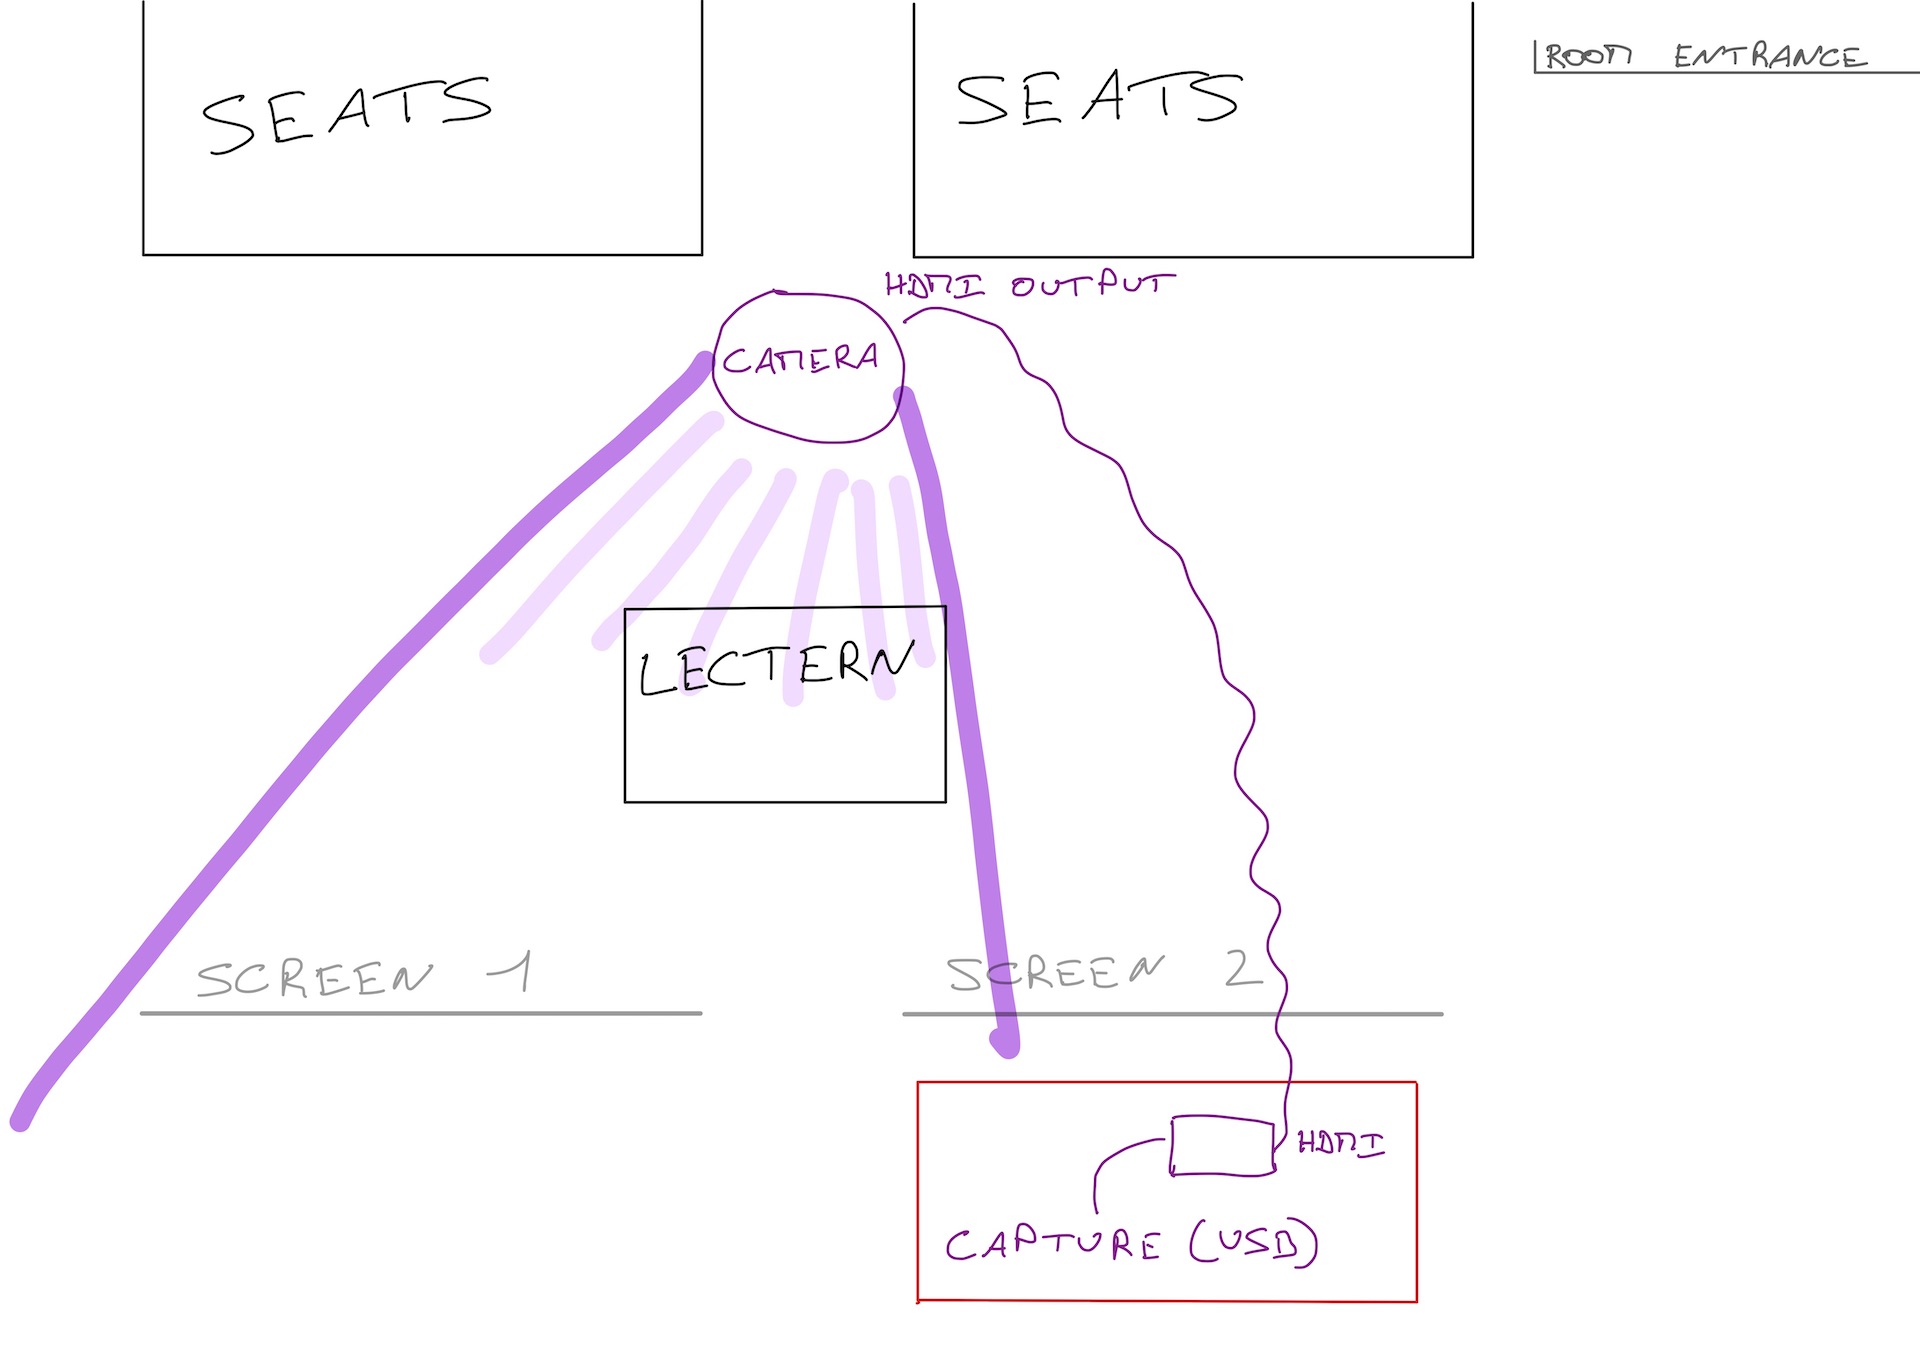 SEATS
SEATS
ROOM ENTRANCE
HDMI OUTPUT
CAMERA
LECTERN
SCREEN 1
SCREEN 2
HDMI
CAPTURE (USB)